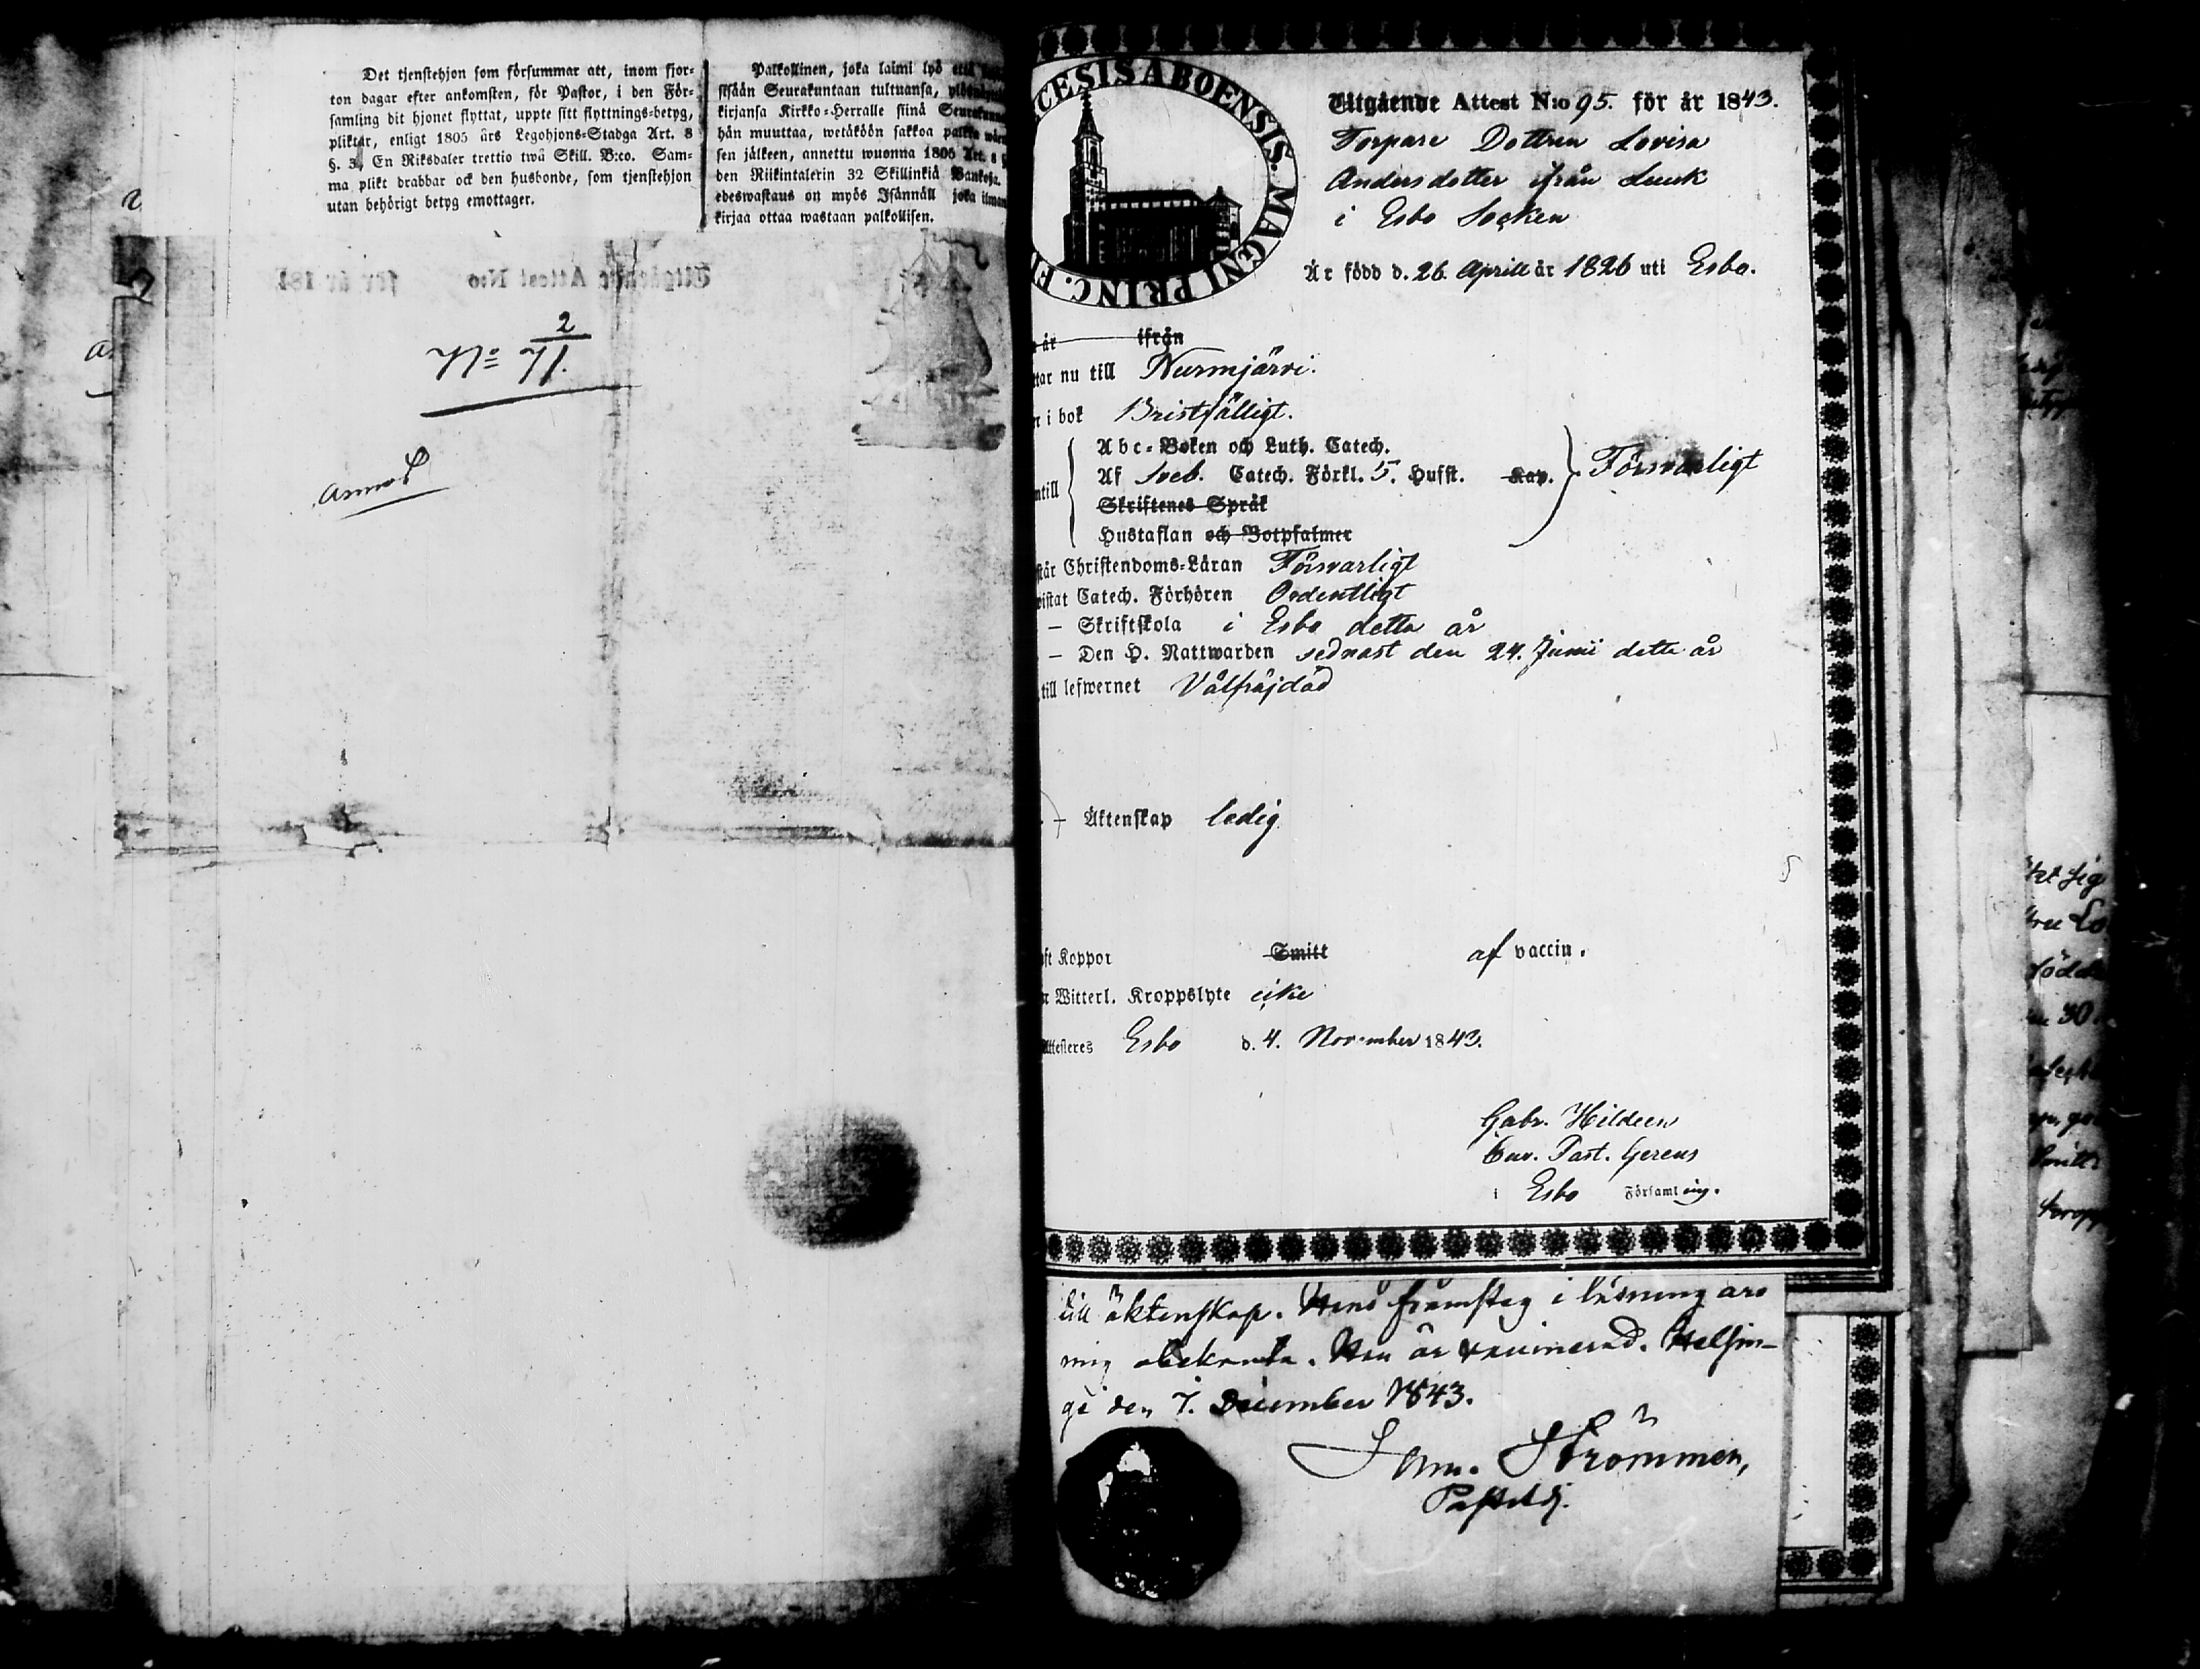 Det tjenstehjon som försummar att, inom fjor-
ton dagar efter ankomsten, för Pastor, i den För-
samling dit hjonet flyttat, uppte sitt flyttnings-betyg,
pliktar, enligt 1805 års Legohjons-Stadga Art. 8
§. 3, En Riksdaler trettio twå Skill. B:co. Sam-
ma plikt drabbar ock den husbonde, som tjenstehjon
utan behörigt betyg emottager.
Palkollinen, joka laimi lyö että
sisään Seurakuntaan tultuansa,
kirjansa Kirkko-Herralle siinä
hän muuttaa, wetäköön sakkoa
sen jälkeen, annettu wuonna 1805 Art. 8
den Riikintalerin 32 Skillinkiä Bankoſa.
edeswastaus on myös Isännäll joka ilman
kirjaa ottaa wastaan palkollisen.
Utgående Attest N:o för år 184
No 2
71.
CESIS ABOENSIS. MAGNI PRINC. F
Utgående Attest N:o 95. för år 1843.
Torpare Dottren Lovisa
Andersdotter ifrån Luuk
i Esbo Socken
Är född d. 26. Aprill år 1826 uti Esbo.
år ifrån
ttar nu till Nurmjärvi.
n i bok Bristfälligt.
Abc-Boken och Luth. Catech.
ntill Af Sveb. Catech. Förkl. 5. Hufst. Kap. Försvarligt
Skriftenes Språk
Hustaflan och Botpsalmer
står Christendoms-Läran Försvarligt
wistat Catech. Förhören Ordentligt
— Skriftskola i Esbo detta år
— Den H. Nattwarden sednast den 24. Junii detta år
till lefwernet Välfräjdad
— Äktenskap ledig
ft Koppor Smitt af vaccin.
r Witterl. Kroppslyte icke
Attesteres Esbo d. 4. November 1843.
Gabr. Hildeen
Past. Gerens
i Esbo Församling.
till äktenskap. Hens framsteg i läsning äro
mig obekanta. Hon är vaccinerad. Helsin-
ge den 7. December 1843.
Sam. Strömmer,